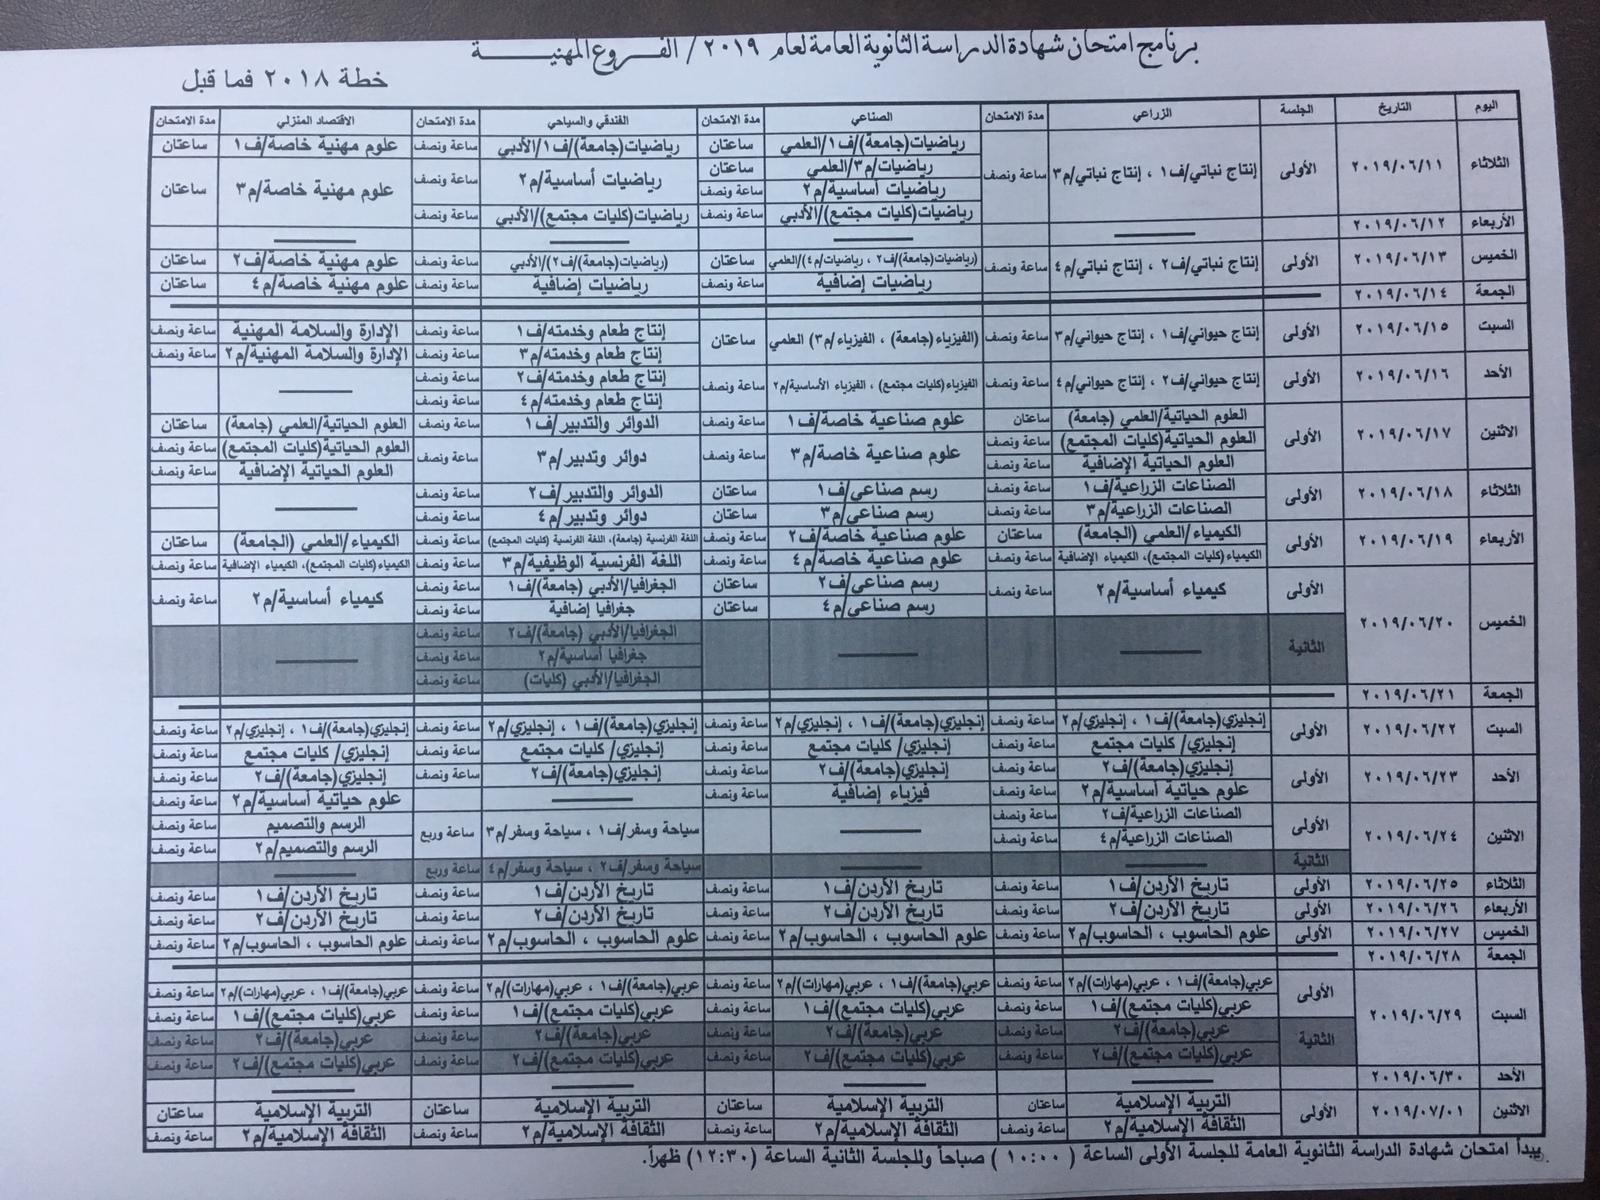 برنامج امتحان شهادة الدراسة الثانوية العامة لعام ٢٠١٩ / الفروع المهنية
خطة ٢٠١٨ فما قبل
اليوم التاريخ الجلسة الزراعي مدة الامتحان الصناعي مدة الامتحان الفندقي والسياحي مدة الامتحان الاقتصاد المنزلي مدة الامتحان
الثلاثاء ٢٠١٩/٠٦/١١ الأولى إنتاج نباتي/ف١ ، إنتاج نباتي/م٣ ساعة ونصف رياضيات(جامعة)/ف١/العلمي ساعتان رياضيات(جامعة)/ف١/الأدبي ساعة ونصف علوم مهنية خاصة/ف١ ساعتان
رياضيات/م٣/العلمي ساعتان رياضيات أساسية/م٢ ساعة ونصف علوم مهنية خاصة/م٣ ساعتان
رياضيات أساسية/م٢ ساعة ونصف
رياضيات(كليات مجتمع)/الأدبي ساعة ونصف رياضيات(كليات مجتمع)/الأدبي ساعة ونصف
الأربعاء ٢٠١٩/٠٦/١٢
الخميس ٢٠١٩/٠٦/١٣ الأولى إنتاج نباتي/ف٢ ، إنتاج نباتي/م٤ ساعة ونصف (رياضيات(جامعة)/ف٢ ، رياضيات/م٤)/العلمي ساعتان (رياضيات(جامعة)/ف٢)/الأدبي ساعة ونصف علوم مهنية خاصة/ف٢ ساعتان
رياضيات إضافية ساعة ونصف رياضيات إضافية ساعة ونصف علوم مهنية خاصة/م٤ ساعتان
الجمعة ٢٠١٩/٠٦/١٤
السبت ٢٠١٩/٠٦/١٥ الأولى إنتاج حيواني/ف١ ، إنتاج حيواني/م٣ ساعة ونصف (الفيزياء(جامعة) ، الفيزياء/م٣) العلمي ساعتان إنتاج طعام وخدمته/ف١ ساعة ونصف الإدارة والسلامة المهنية ساعة ونصف
إنتاج طعام وخدمته/م٣ ساعة ونصف الإدارة والسلامة المهنية/م٢ ساعة ونصف
الأحد ٢٠١٩/٠٦/١٦ الأولى إنتاج حيواني/ف٢ ، إنتاج حيواني/م٤ ساعة ونصف الفيزياء(كليات مجتمع) ، الفيزياء الأساسية/م٢ ساعة ونصف إنتاج طعام وخدمته/ف٢ ساعة ونصف
إنتاج طعام وخدمته/م٤ ساعة ونصف
الاثنين ٢٠١٩/٠٦/١٧ الأولى العلوم الحياتية/العلمي (جامعة) ساعتان علوم صناعية خاصة/ف١ ساعة ونصف الدوائر والتدبير/ف١ ساعة ونصف العلوم الحياتية/العلمي (جامعة) ساعتان
العلوم الحياتية(كليات المجتمع) ساعة ونصف علوم صناعية خاصة/م٣ ساعة ونصف دوائر وتدبير/م٣ ساعة ونصف العلوم الحياتية(كليات المجتمع) ساعة ونصف
العلوم الحياتية الإضافية ساعة ونصف العلوم الحياتية الإضافية ساعة ونصف
الثلاثاء ٢٠١٩/٠٦/١٨ الأولى الصناعات الزراعية/ف١ ساعة ونصف رسم صناعي/ف١ ساعتان الدوائر والتدبير/ف٢ ساعة ونصف
الصناعات الزراعية/م٣ ساعة ونصف رسم صناعي/م٣ ساعتان دوائر وتدبير/م٤ ساعة ونصف
الأربعاء ٢٠١٩/٠٦/١٩ الأولى الكيمياء/العلمي (الجامعة) ساعتان علوم صناعية خاصة/ف٢ ساعة ونصف اللغة الفرنسية (جامعة)، اللغة الفرنسية (كليات المجتمع) ساعة ونصف الكيمياء/العلمي (الجامعة) ساعتان
الكيمياء(كليات المجتمع)، الكيمياء الإضافية ساعة ونصف علوم صناعية خاصة/م٤ ساعة ونصف اللغة الفرنسية الوظيفية/م٣ ساعة ونصف الكيمياء(كليات المجتمع)، الكيمياء الإضافية ساعة ونصف
الخميس ٢٠١٩/٠٦/٢٠ الأولى كيمياء أساسية/م٢ ساعة ونصف رسم صناعي/ف٢ ساعتان الجغرافيا/الأدبي (جامعة)/ف١ ساعة ونصف كيمياء أساسية/م٢ ساعة ونصف
رسم صناعي/م٤ ساعتان جغرافيا إضافية ساعة ونصف
الثانية الجغرافيا/الأدبي (جامعة)/ف٢ ساعة ونصف
جغرافيا أساسية/م٢ ساعة ونصف
الجغرافيا/الأدبي (كليات) ساعة ونصف
الجمعة ٢٠١٩/٠٦/٢١
السبت ٢٠١٩/٠٦/٢٢ الأولى إنجليزي(جامعة)/ف١ ، إنجليزي/م٢ ساعة ونصف إنجليزي(جامعة)/ف١ ، إنجليزي/م٢ ساعة ونصف إنجليزي(جامعة)/ف١ ، إنجليزي/م٢ ساعة ونصف إنجليزي(جامعة)/ف١ ، إنجليزي/م٢ ساعة ونصف
إنجليزي/ كليات مجتمع ساعة ونصف إنجليزي/ كليات مجتمع ساعة ونصف إنجليزي/ كليات مجتمع ساعة ونصف إنجليزي/ كليات مجتمع ساعة ونصف
الأحد ٢٠١٩/٠٦/٢٣ الأولى إنجليزي(جامعة)/ف٢ ساعة ونصف إنجليزي(جامعة)/ف٢ ساعة ونصف إنجليزي(جامعة)/ف٢ ساعة ونصف إنجليزي(جامعة)/ف٢ ساعة ونصف
علوم حياتية أساسية/م٢ ساعة ونصف فيزياء إضافية ساعة ونصف علوم حياتية أساسية/م٢ ساعة ونصف
الاثنين ٢٠١٩/٠٦/٢٤ الأولى الصناعات الزراعية/ف٢ ساعة ونصف سياحة وسفر/ف١ ، سياحة وسفر/م٣ ساعة وربع الرسم والتصميم ساعة ونصف
الصناعات الزراعية/م٤ ساعة ونصف الرسم والتصميم/م٢ ساعة ونصف
الثانية سياحة وسفر/ف٢ ، سياحة وسفر/م٤ ساعة وربع
الثلاثاء ٢٠١٩/٠٦/٢٥ الأولى تاريخ الأردن/ف١ ساعة ونصف تاريخ الأردن/ف١ ساعة ونصف تاريخ الأردن/ف١ ساعة ونصف تاريخ الأردن/ف١ ساعة ونصف
الأربعاء ٢٠١٩/٠٦/٢٦ الأولى تاريخ الأردن/ف٢ ساعة ونصف تاريخ الأردن/ف٢ ساعة ونصف تاريخ الأردن/ف٢ ساعة ونصف تاريخ الأردن/ف٢ ساعة ونصف
الخميس ٢٠١٩/٠٦/٢٧ الأولى علوم الحاسوب ، الحاسوب/م٢ ساعة ونصف علوم الحاسوب ، الحاسوب/م٢ ساعة ونصف علوم الحاسوب ، الحاسوب/م٢ ساعة ونصف علوم الحاسوب ، الحاسوب/م٢ ساعة ونصف
الجمعة ٢٠١٩/٠٦/٢٨
السبت ٢٠١٩/٠٦/٢٩ الأولى عربي(جامعة)/ف١ ، عربي(مهارات)/م٢ ساعة ونصف عربي(جامعة)/ف١ ، عربي(مهارات)/م٢ ساعة ونصف عربي(جامعة)/ف١ ، عربي(مهارات)/م٢ ساعة ونصف عربي(جامعة)/ف١ ، عربي(مهارات)/م٢ ساعة ونصف
عربي(كليات مجتمع)/ف١ ساعة ونصف عربي(كليات مجتمع)/ف١ ساعة ونصف عربي(كليات مجتمع)/ف١ ساعة ونصف عربي(كليات مجتمع)/ف١ ساعة ونصف
الثانية عربي(جامعة)/ف٢ ساعة ونصف عربي(جامعة)/ف٢ ساعة ونصف عربي(جامعة)/ف٢ ساعة ونصف عربي(جامعة)/ف٢ ساعة ونصف
عربي(كليات مجتمع)/ف٢ ساعة ونصف عربي(كليات مجتمع)/ف٢ ساعة ونصف عربي(كليات مجتمع)/ف٢ ساعة ونصف عربي(كليات مجتمع)/ف٢ ساعة ونصف
الأحد ٢٠١٩/٠٦/٣٠
الاثنين ٢٠١٩/٠٧/٠١ الأولى التربية الإسلامية ساعتان التربية الإسلامية ساعتان التربية الإسلامية ساعتان التربية الإسلامية ساعتان
الثقافة الإسلامية/م٢ ساعة ونصف الثقافة الإسلامية/م٢ ساعة ونصف الثقافة الإسلامية/م٢ ساعة ونصف الثقافة الإسلامية/م٢ ساعة ونصف
يبدأ امتحان شهادة الدراسة الثانوية العامة للجلسة الأولى الساعة ( ١٠:٠٠ ) صباحاً وللجلسة الثانية الساعة (١٢:٣٠) ظهراً.